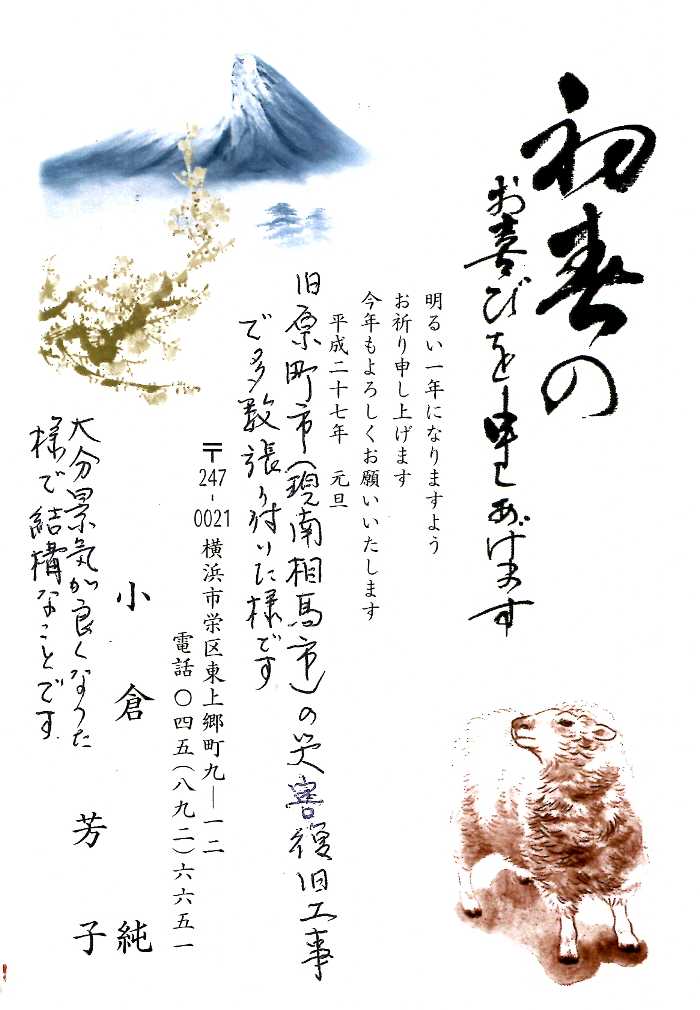 初春の
お喜びを申しあげます
明るい一年になりますよう
お祈り申し上げます
今年もよろしくお願いいたします
平成二十七年　元旦
旧原町市(現南相馬市)の災害復旧工事
で多数張り付いた様です
〒247-0021 横浜市栄区東上郷町九―一二
電話〇四五(八九二)六六五一
小倉　純
芳子
大分景気が良くなった
様で結構なことです.